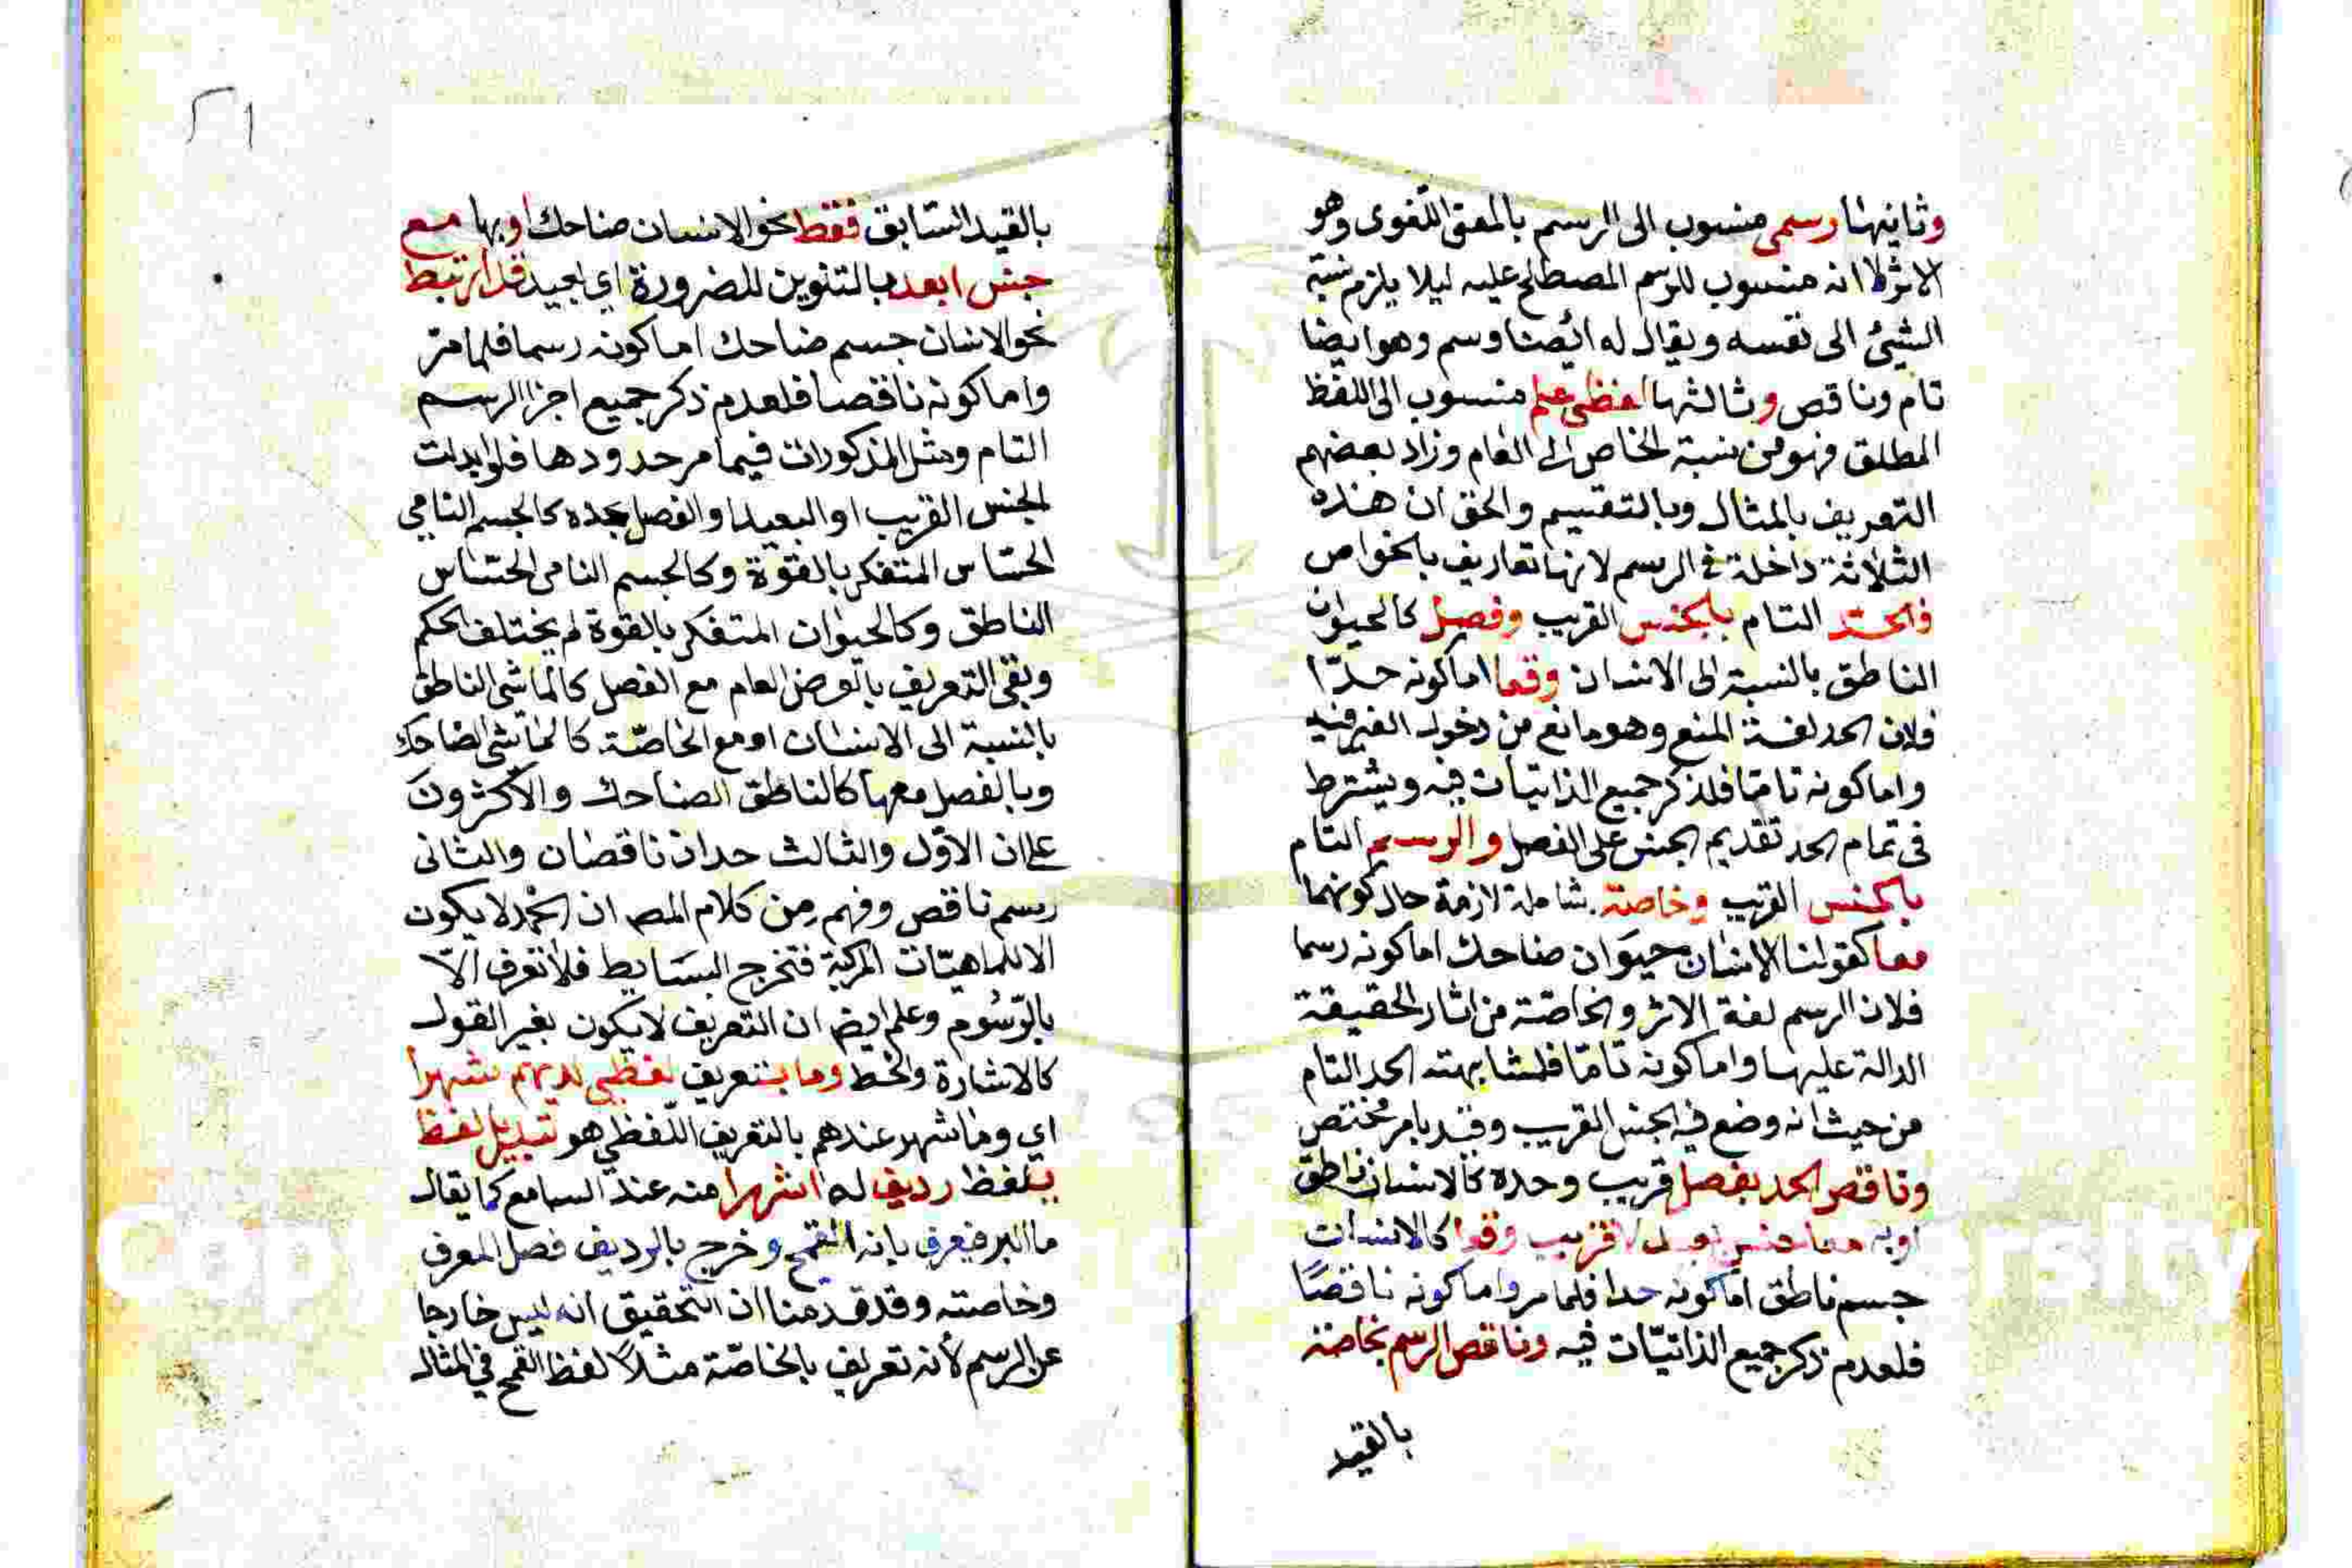 وثانيها رسمي منسوب الى الرسم بالمعنى اللغوى وهو
الاثر لا انه منسوب للرسم المصطلح عليه ليلا يلزم نسبة
الشيئ الى نفسه ويقال له ائضا وسم وهو ايضا
تام وناقص وثالثها لفظي علم منسوب الى اللفظ
المطلق فهو من نسبة الخاص الى العام وزاد بعضهم
التعريف بالمثال وبالتقسيم والحق ان هذه
الثلاثة داخلة في الرسم لانها تعاريف بالخواص
فالحد التام بالجنس القريب وفصل كالحيوان
الناطق بالنسبة الى الانسان وقعا اما كونه حدّا
فلان الحد لغة المنع وهو مانع من دخول الغير فيه
واما كونه تامّا فلذكر جميع الذاتيات فيه ويشترط
فى تمام الحد تقديم الجنس على الفصل والرسم التام
بالجنس القريب وخاصة شاملة لازمة حال كونهما
معا كقولنا الانسان حيوان ضاحك اما كونه رسما
فلان الرسم لغة الاثر والخاصّة من اثار الحقيقة
الدالة عليها واما كونه تامّا فلمشابهته الحد التام
من حيث انه وضع فيه الجنس القريب وقيد بامر مختص
وناقص الحد بفصل قريب وحده كالانسان ناطق
اوبه معا جنس بعيد لا قريب وقعا كالانسان
جسم ناطق اما كونه حدا فلما مر واما كونه ناقصًا
فلعدم ذكر جميع الذاتيّات فيه وناقص الرسم بخاصة
بالقيد
٥١
بالقيد السّابق فقط نحو الانسان ضاحك اوبها مع
جنس ابعد بالتنوين للضرورة اي بعيد قد ارتبط
نحو الانسان جسم ضاحك اما كونه رسما فلما مرّ
واما كونه ناقصا فلعدم ذكر جميع اجزا الرسم
التام ومثل المذكورات فيما مر حدودها فلو ابدلت
الجنس القريب او البعيد او الفصل بحده كالجسم النامي
الحسّاس المتفكر بالقوّة وكالجسم النامى الحسّاس
الناطق وكالحيوان المتفكر بالقوة لم يختلف الحكم
وبقى التعريف بالعرض العام مع الفصل كالماشى الناطق
بالنسبة الى الانسان او مع الخاصّة كالماشى الضاحك
وبالفصل معها كالناطق الضاحك والاكثرون
على ان الاوّل والثالث حدان ناقصان والثانى
رسم ناقص وفهم من كلام المص ان الحد لا يكون
الا للماهيّات المركبة فتخرج البسَايط فلا تعرف الاّ
بالرّسُوم وعلم ايضا ان التعريف لا يكون بغير القول
كالاشارة والخط وما بتعريف لفظي لديهم شهرا
اي وما شهر عندهم بالتعريف اللّفظي هو تبديل لفظ
بلفظ رديف له اشهرا منه عند السامع كما يقال
ما البر فيعرف بانه القمح وخرج بالرديف فصل المعرف
وخاصته وقد قدمنا ان التحقيق انه ليس خارجا
عن الرسم لأنه تعريف بالخاصّة مثلاً لفظ القمح في المثال